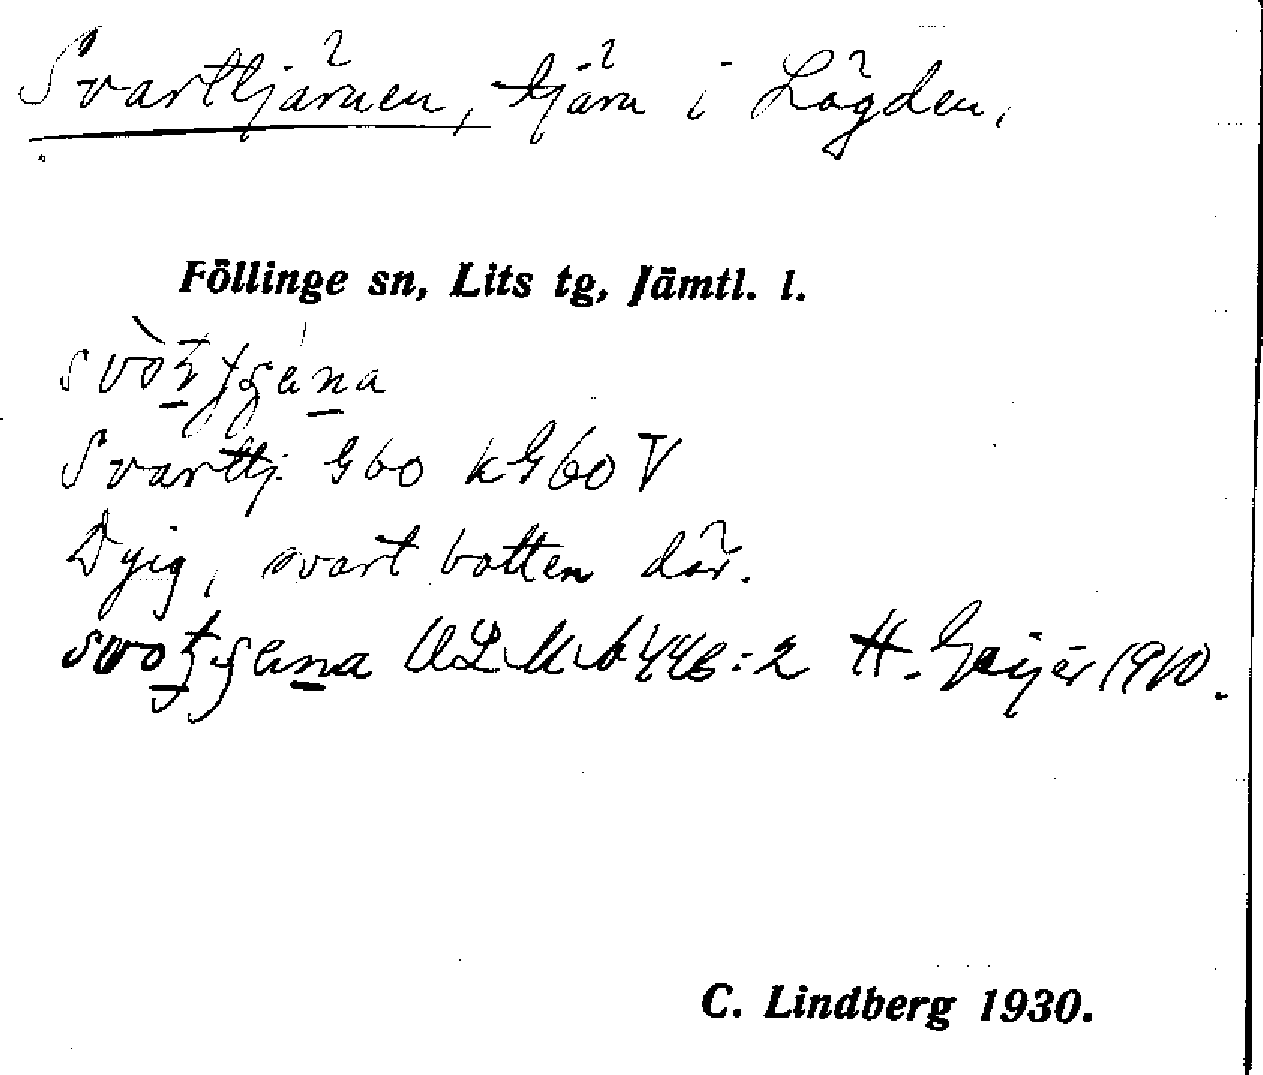 Svarttjärnen, tjärn i Lögden.
Föllinge sn, Lits tg, Jämtl. l.
Svarttj. G60 kG60 V
Dyig, svart botten där.
ULMA 446:2 H. Geijer 1910.
C. Lindberg 1930.